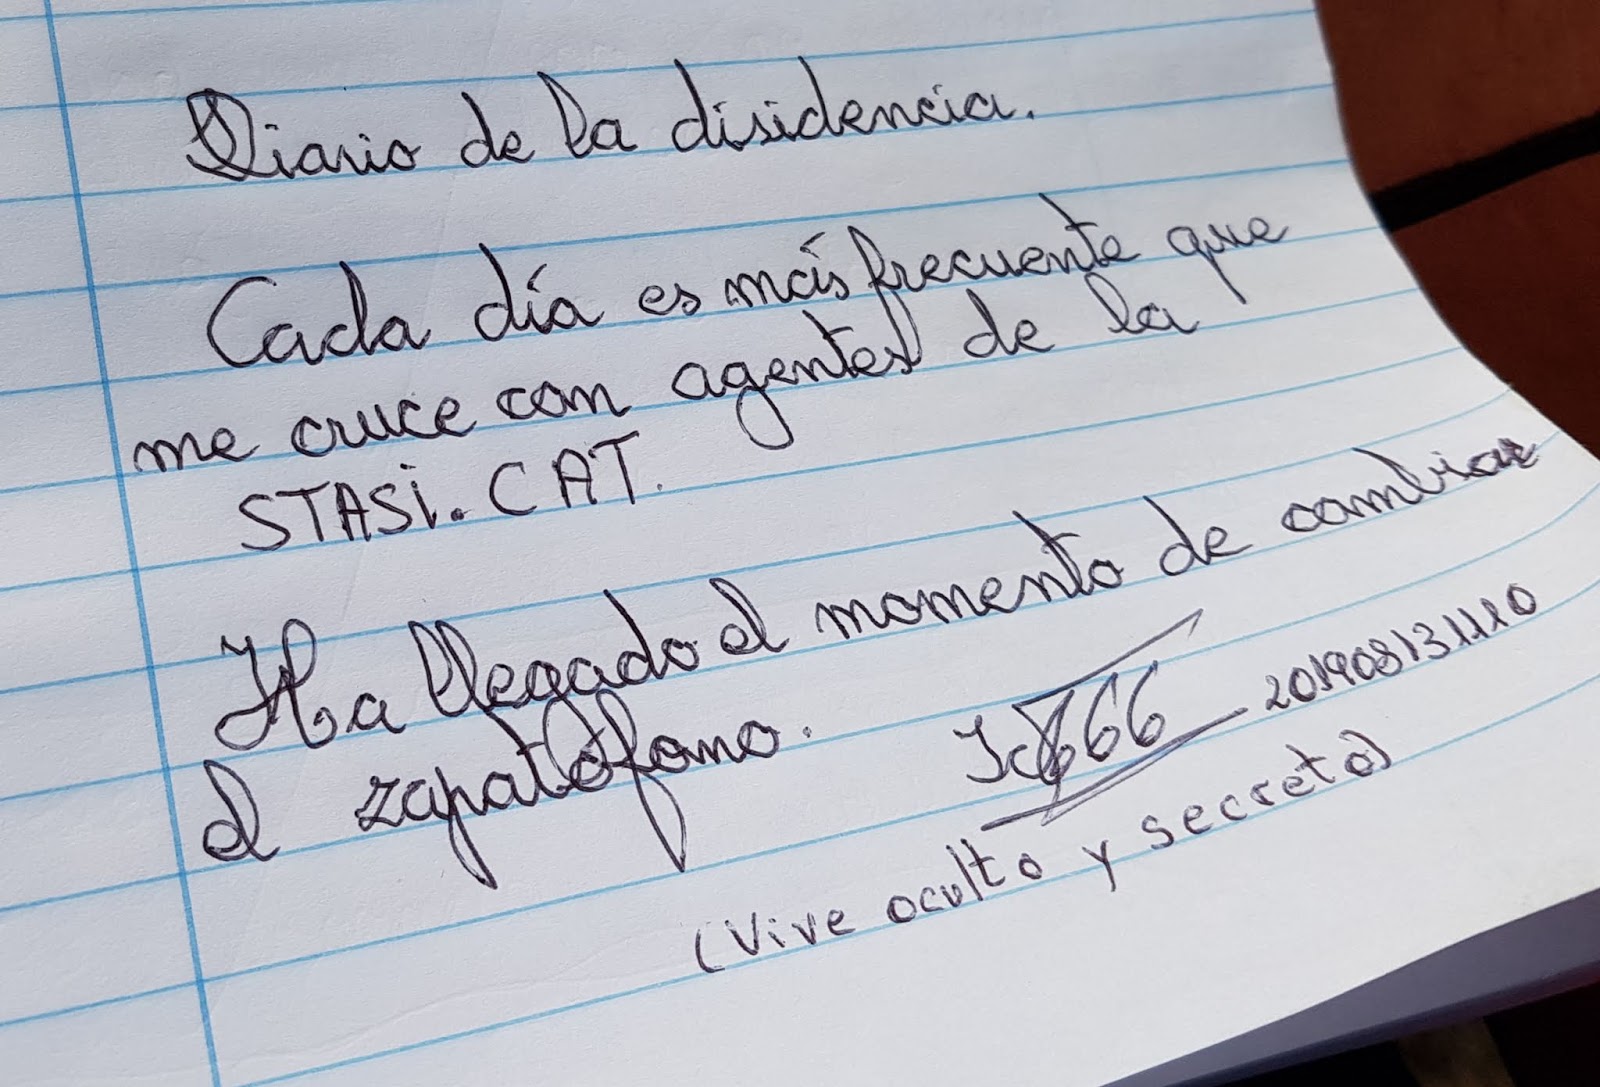 Diario de la disidencia.
Cada día es más frecuente que
me cruce con agentes de la
STASI.CAT.
Ha llegado el momento de cambiar
el zapatófono.
201908131120
(Vive oculto y secreto)